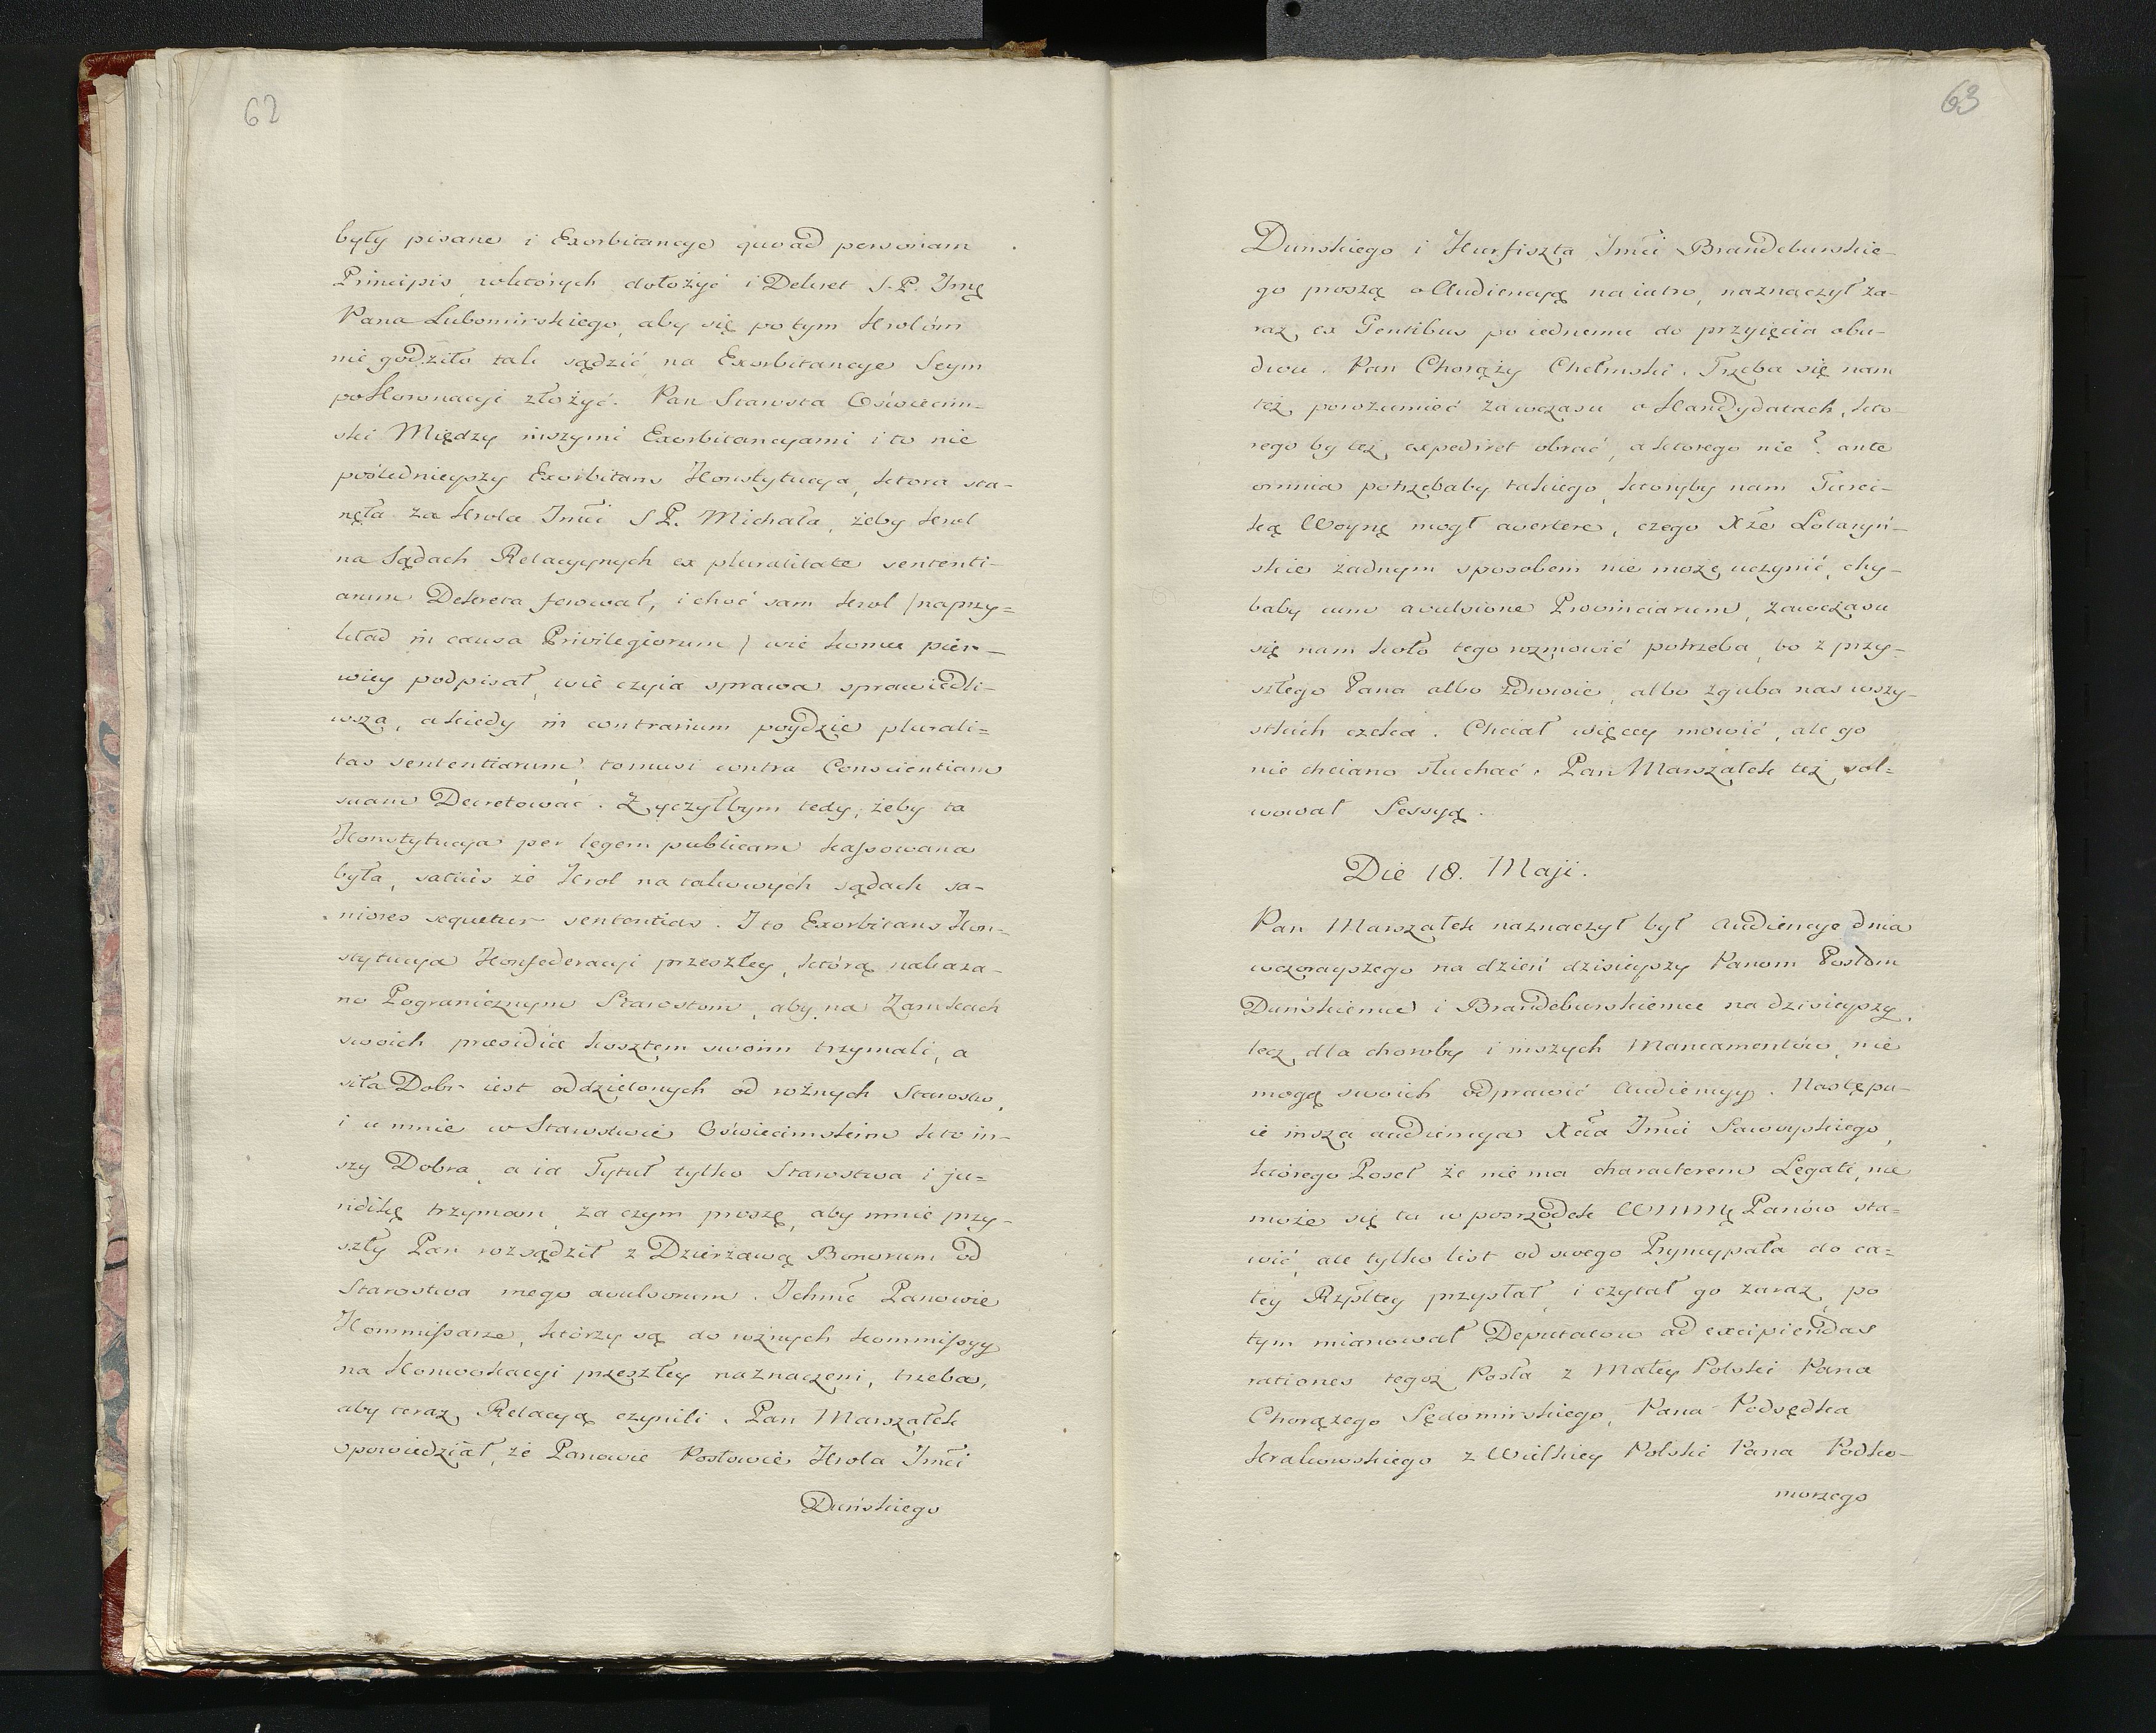 62
były pisane i Exorbitancye quoad personam
Principis, wktórych dołożyć i Dekret S. P. Jmę
Pana Lubomirskiego, aby się po tym Krolóm
nie godziło tak sądzić, na Exorbitancye Seym
po Koronacyi złożyć. Pan Starosta Oświecim-
ski Między inszymi Exorbitancyami i to nie
pośledniejszy Exorbitans Konstytucya, ktora sta-
nęła za Krola Jmći S P. Michała, żeby krol
na Sądach Relacyjnych ex pluralitate sententi-
arum Dekreta ferował, i choć sam krol /naprzy=
kład in causa Privilegiorum/ wie komu pier-
wiey podpisał, wie czyia sprawa sprawiedli-
wsza, a kiedy in contrarium poydzie plurali=
tas sententiarum, to musi contra Conscientiam
suam Decretować. Życzyłbym tedy, żeby ta
Konstytucya per legem publicam kassowana
była, satius że Krol na takowych sądach sa-
niores sequetur sententias. I to Exorbitans Kon-
stytucya Konfederacyi przeszłey, którą nakaza-
no Pogranicznym Starostom, aby na Zamkach
swoich præsidia kosztem swoim trzymali, a
siła Dobr iest oddzielonych od rożnych Starostw,
i u mnie w Starostwie Oświecimskim kto in-
szy Dobra, a ia Tytuł tylko Starostwa i ju=
ridikę trzymam, za czym proszę, aby mnie przy-
szły Pan rozsądził z Dzierżawą Bonorum od
Starostwa mego avulsorum. Ichmć Panowie
Kommissarze, którzy są do rożnych kommissyy
na Konwokacyi przeszłey naznaczeni, trzeba,
aby teraz Relacyą czynili. Pan Marszałek
opowiedział, że Panowie Posłowie Krola Jmći
Duńskiego
63
Duńskiego i Kurfiszta Jmći Brandeburskie-
go proszą o Audiencyą na iutro, naznaczył za-
raz ex Gentibus po iednemu do przyięcia obu-
dwu. Pan Chorąży Chełmski. Trzeba się nam
też porozumieć zawczasu o Kandydatach, kto-
rego by też expediret obrać, a ktorego nie? ante
omnia potrzebaby takiego, ktoryby nam Turec-
ką Woynę mogł avertere, czego Xże Lotaryń-
skie żadnym sposobem nie może uczynić, chy-
baby cum avulsione Provinciarum, zawczasu
się nam koło tego rozmowić potrzeba, bo z przy-
szłego Pana albo zdrowie, albo zguba nas wszy-
stkich czeka. Chciał więcey mowić, ale go
nie chciano słuchać. Pan Marszałek też sol-
wował Sessyą.
Die 18. Maji.
Pan Marszałek naznaczył był Audiencye dnia
wczorayszego na dzień dzisieyszy Panom Posłom
Duńskiemu i Brandeburskiemu na dzisieyszy,
lecz dla choroby i inszych Mancamentów, nie
mogą swoich odprawić Audiencyy. Następu-
ie insza audiencya Xcia Jmći Sawoyskiego,
którego Poseł że nie ma characterem Legati, nie
może się tu w posrzodek Wmmę Panów sta-
wić, ale tylko list od swego Pryncypała do ca-
łey Rzpltey przysłał, i czytał go zaraz, po
tym mianował Deputatow ad excipiendas
rationes tegoż Posła z Małey Polski Pana
Chorążego Sędomirskiego, Pana Podsędka
Krakowskiego z Wielkiey Polski Pana Podko-
morzego